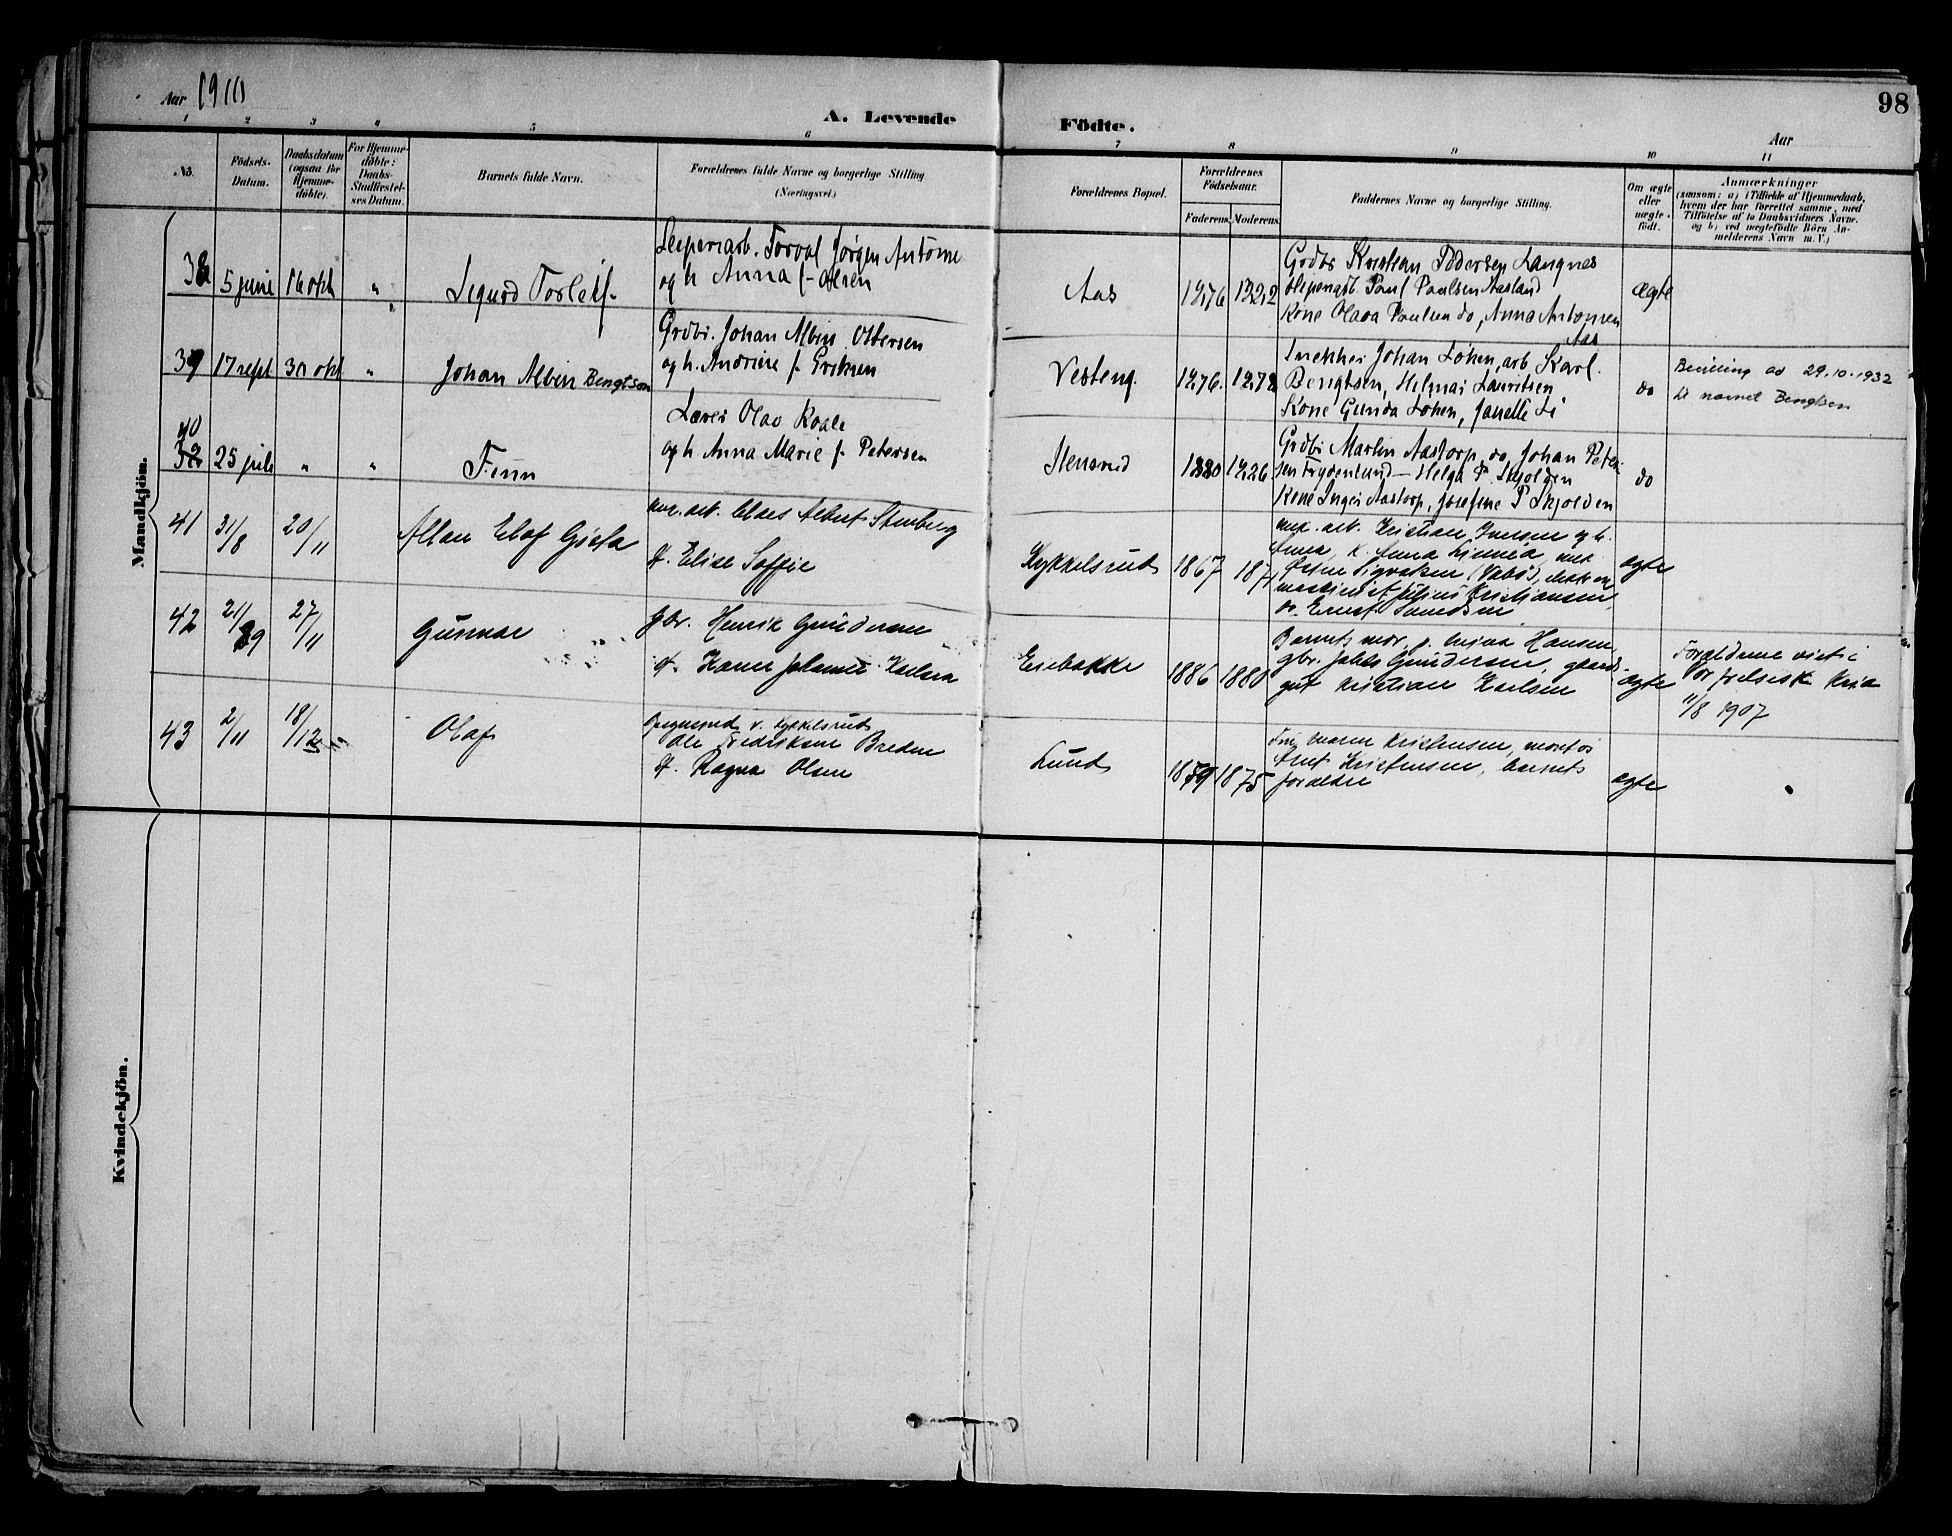 Aar 1910
A. Levende Födte.
Aar
98
1 2 3 4 5 6 7 8 9 10 11
No.
Födsels-
Datum.
Daabsdatum
(ogsaa for
Hjemme-
döbte).
For Hjemme-
döbte:
Daabs-
Stadfæstel-
ses Datum.
Barnets fulde Navn.
Forældrenes fulde Navne og borgerlige Stilling
(Næringsvei.)
Forældrenes Bopæl.
Forældrenes
Födselsaar.
Faderens.
Moderens.
Faddernes Navne og borgerlige Stilling.
Om ægte
eller
uægte
födt.
Anmærkninger
(saasom: a) i Tilfælde af Hjemmedaab,
hvem der har forrettet samme, med
Tilföielse af to Daabsvidners Navne,
og b) ved uægtefödte Börn An-
melderens Navn m. V.)
Mandkjön.
38
5 juni
16 okt
"
Sigurd Torleif
Torval Jörgen Antonsen
og h. Anna f. Olsen
Aas
1876
1882
Grdbr Kristian Pedersen Langnes
Paul Paulsen Aasland
Kone Olava Paulsen do, Anna Antonsen
Aas
ægte
39
17 sept
30 okt
"
Johan Albin Bengtson
Grdbr. Johan Albin
og h. Andrine f. Eriksen
Vesteng.
1876.
1878
Johan Löken, arb Karl
Bengtsen, Helmar Lauritsen
Kone Gunda Löken,
do
Bevilling av 29.10.1932
til navnet Bengtsen
40
25 juli
"
"
Finn
Lærer Olav
og h. Anna Marie f. Petersen
Stensrud
1880
1886
Grdbr Martin Aastorp, do, Johan Peter-
sen Frydenlund - Helga P. Skjolden
Kone Inger Aastorp, Josefine P Skjolden
do
41
31/8
20/11
Allan Elof Gösta
Claes Albert Stenberg
Elise Soffie
Kykkelsrud
1867
1871
Kristian Iversen og h.
Anna, Anna
maskinist Julius Kristiansen,
do. Ernst
ægte
42
21/9
27/11
Gunnar
gbr. Henrik Gundersen
Karen Johanne Karlsen
1886
1880
Barnets mor, Hansen,
gbr. Gundersen, gaards-
gut Kristian Karlsen
ægte
Forældrene viet i
Vor frelsers k Kria
11/8 1907
43
2/11
18/12
Olaf
v. Kykkelsrud
Ole Fredriksen
Ragna Olsen
Lund
1859
1875
Maren Kristensen,
Kristensen, barnets
forældre
ægte
Kvindekjön.